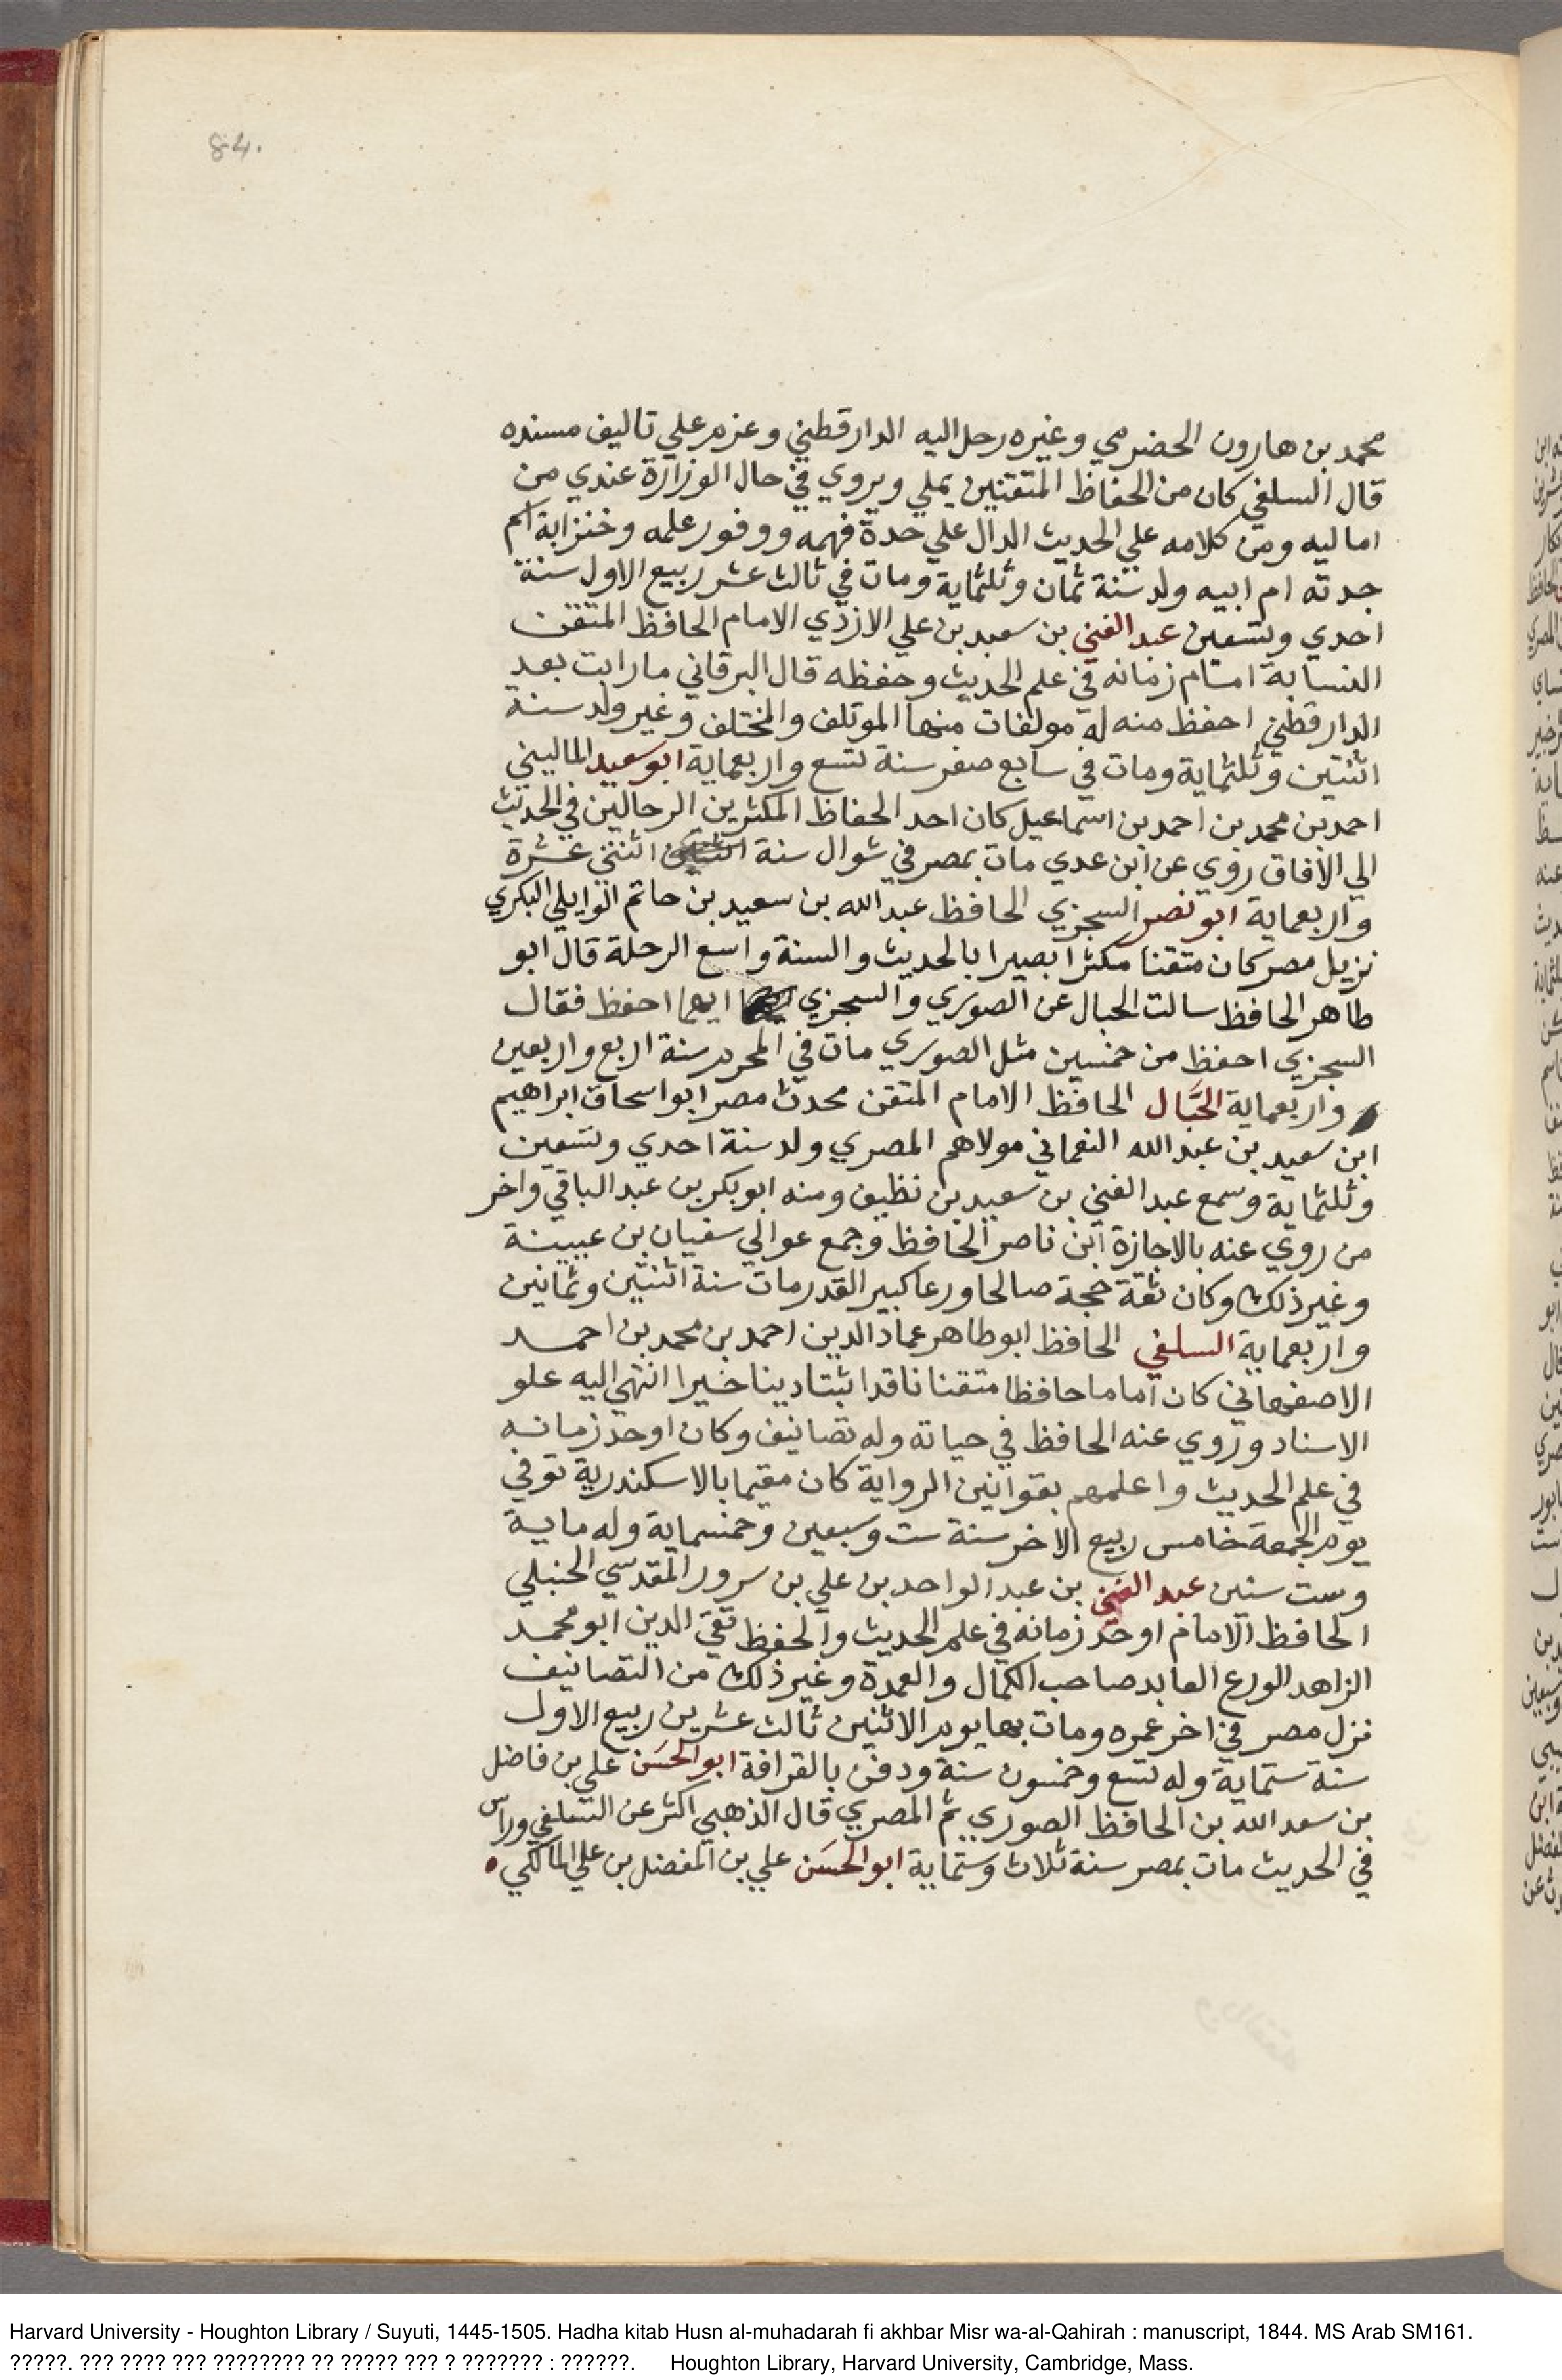 84.
محمد بن هارون الحضرمي وغيره رحل اليه الدارقطني وعزم علي تاليف مسنده
قال السلفي كان من الحفاظ المتقنين يملي ويروي في حال الوزارة عندي من
اماليه ومن كلامه علي الحديث الدال علي حدة فهمه ووفور علمه وخنزابة ام
جدته ام ابيه ولد سنة ثمان وثلثماية ومات في ثالث عشر ربيع الاول سنة
احدي وتسعين عبد الغني بن سعيد بن علي الازدي الامام الحافظ المتقن
النسابة امام زمانه في علم الحديث وحفظه قال البرقاني مارايت بعد
الدارقطني احفظ منه له مولفات منها الموتلف والمختلف وغير ولد سنة
اثنتين وثلثماية ومات في سابع صفر سنة تسع واربعماية ابو سعيد الماليني
احمد بن محمد بن احمد بن اسماعيل كان احد الحفاظ المكثرين الرحالين في الحديث
الي الافاق روي عن ابن عدي مات بمصر في شوال سنة اثنتي عشرة
واربعماية ابو نصر السجزي الحافظ عبد الله بن سعيد بن حاتم الوايلي البكري
نزيل مصر كان متقنا مكثرا بصيرا بالحديث والسنة واسع الرحلة قال ابو
طاهر الحافظ سالت الحبال عن الصوري والسجزي ايهما احفظ فقال
السجزي احفظ من خمسين مثل الصوري مات في المحرم سنة اربع واربعين
واربعماية الحبَّال الحافظ الامام المتقن محدث مصر ابو اسحاق ابراهيم
ابن سعيد بن عبد الله النعماني مولاهم المصري ولد سنة احدي وتسعين
وثلثماية وسمع عبد الغني بن سعيد بن نظيف ومنه ابو بكر بن عبد الباقي واخر
من روي عنه بالاجازة ابن ناصر الحافظ وجمع عوالي سفيان بن عيينة
وغير ذلك وكان ثقة حجة صالحا ورعا كبير القدر مات سنة اثنتين وثمانين
واربعماية السلفي الحافظ ابو طاهر عماد الدين احمد بن محمد بن احمد
الاصفهاني كان اماما حافظا متقنا ناقدا ثبتا دينا خيرا انتهي اليه علو
الاسناد وروي عنه الحافظ في حياته وله تصانيف وكان اوحد زمانه
في علم الحديث واعلمهم بقوانين الرواية كان مقيما بالاسكندرية توفي
يوم الجمعة خامس ربيع الاخر سنة ست وسبعين وخمسماية وله ماية
وست سنين عبد الغني بن عبد الواحد بن علي بن سرور المقدسي الحنبلي
الحافظ الامام اوحد زمانه في علم الحديث والحفظ تقي الدين ابو محمد
الزاهد الورع العابد صاحب الكمال والعمدة وغير ذلك من التصانيف
نزل مصر في اخر عمره ومات بها يوم الاثنين ثالث عشرين ربيع الاول
سنة ستماية وله تسع وخمسون سنة ودفن بالقرافة ابو الحسَن علي بن فاضل
بن سعد الله بن الحافظ الصوري ثم المصري قال الذهبي اكثر عن السلفي وراس
في الحديث مات بمصر سنة ثلاث وستماية ابو الحسَن علي بن المفضل بن علي المالكي
Harvard University - Houghton Library / Suyuti, 1445-1505. Hadha kitab Husn al-muhadarah fi akhbar Misr wa-al-Qahirah : manuscript, 1844. MS Arab SM161.
?????. ??? ???? ??? ???????? ?? ????? ??? ? ??????? : ??????. Houghton Library, Harvard University, Cambridge, Mass.